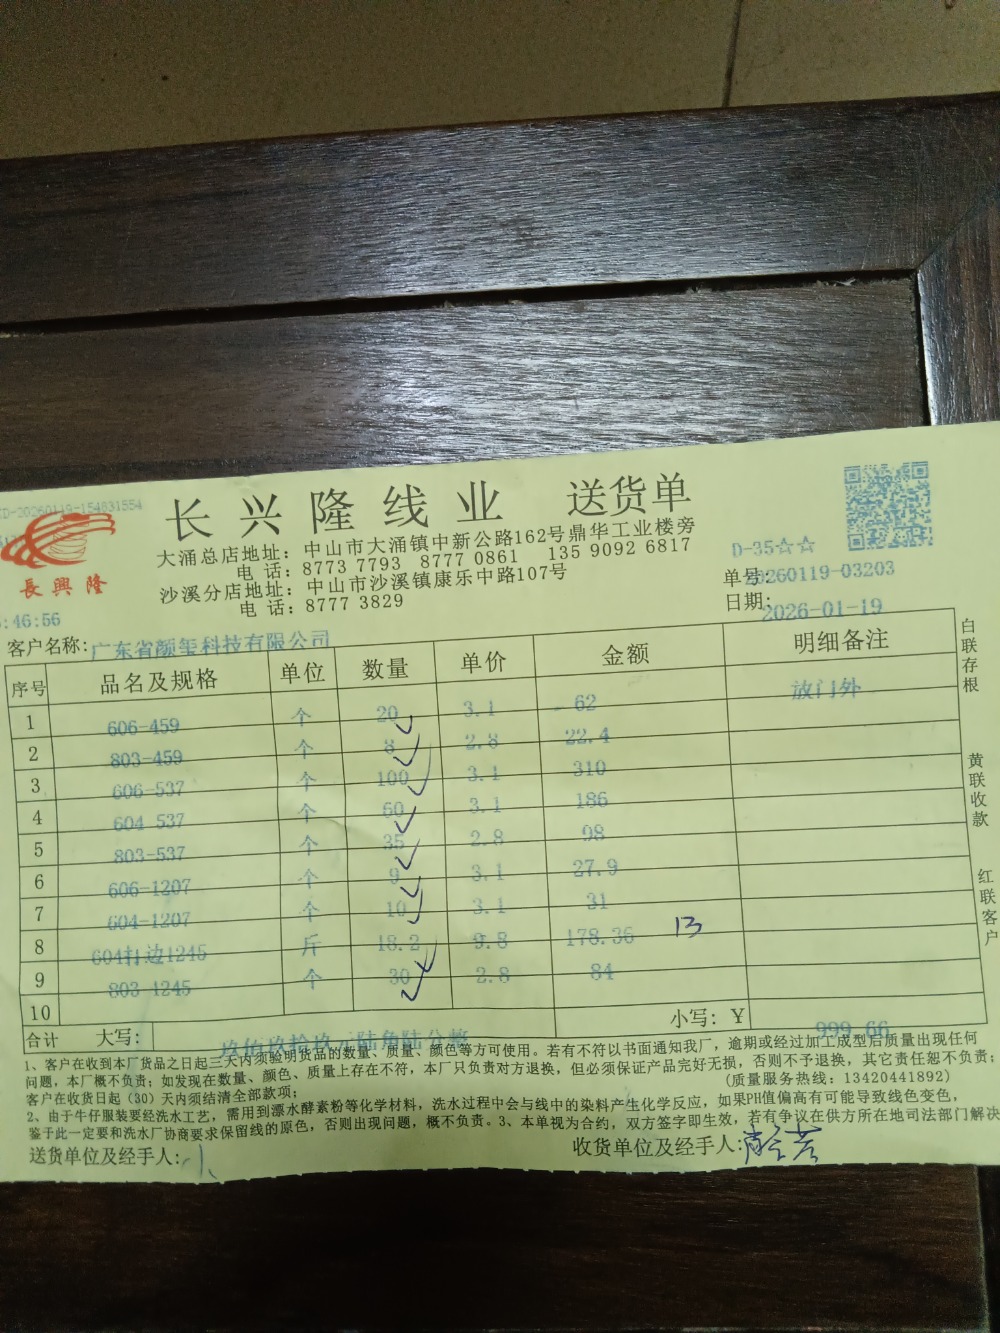 D-20260119-154831554
长兴隆线业 送货单
大涌总店地址：中山市大涌镇中新公路162号鼎华工业楼旁
电 话：8773 7793 8777 0861 135 9092 6817
沙溪分店地址：中山市沙溪镇康乐中路107号
电 话：8777 3829
長興隆
D-35☆☆
单号:20260119-03203
日期:2026-01-19
:46:56
客户名称:广东省颜玺科技有限公司
序号 品名及规格 单位 数量 单价 金额 明细备注
1 606-459 个 20 3.1 62 放门外
2 803-459 个 8 2.8 22.4
3 606-537 个 100 3.1 310
4 604-537 个 60 3.1 186
5 803-537 个 35 2.8 98
6 606-1207 个 9 3.1 27.9
7 604-1207 个 10 3.1 31
8 604打边1245 斤 18.2 9.8 178.36 13
9 803-1245 个 30 2.8 84
10
合计 大写：玖佰玖拾玖元陆角陆分整 小写：￥ 999.66
白联存根
黄联收款
红联客户
1、客户在收到本厂货品之日起三天内须验明货品的数量、质量、颜色等方可使用。若有不符以书面通知我厂，逾期或经过加工成型后质量出现任何
问题，本厂概不负责；如发现在数量、颜色、质量上存在不符，本厂只负责对方退换，但必须保证产品完好无损，否则不予退换，其它责任恕不负责；
客户在收货日起（30）天内须结清全部款项； (质量服务热线：13420441892)
2、由于牛仔服装要经洗水工艺，需用到漂水酵素粉等化学材料，洗水过程中会与线中的染料产生化学反应，如果PH值偏高有可能导致线色变色，
鉴于此一定要和洗水厂协商要求保留线的原色，否则出现问题，概不负责。3、本单视为合约，双方签字即生效，若有争议在供方所在地司法部门解决
送货单位及经手人： 收货单位及经手人：